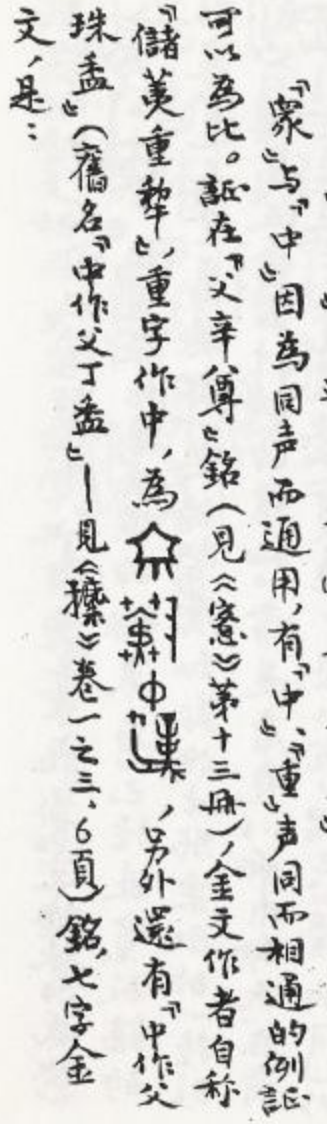 『眾』与『中』因為同声而通用，有『中、『重』声同而相通的例証
可以為比。証在『父辛尊』銘（見《窓》第十三冊），金文作者自称
『儲萬重犂』，重字作中，為，另外還有『中作父
珠盉』（舊名『中作父丁盉』—見《攈》卷一之三、6頁）銘，七字金
文，是：